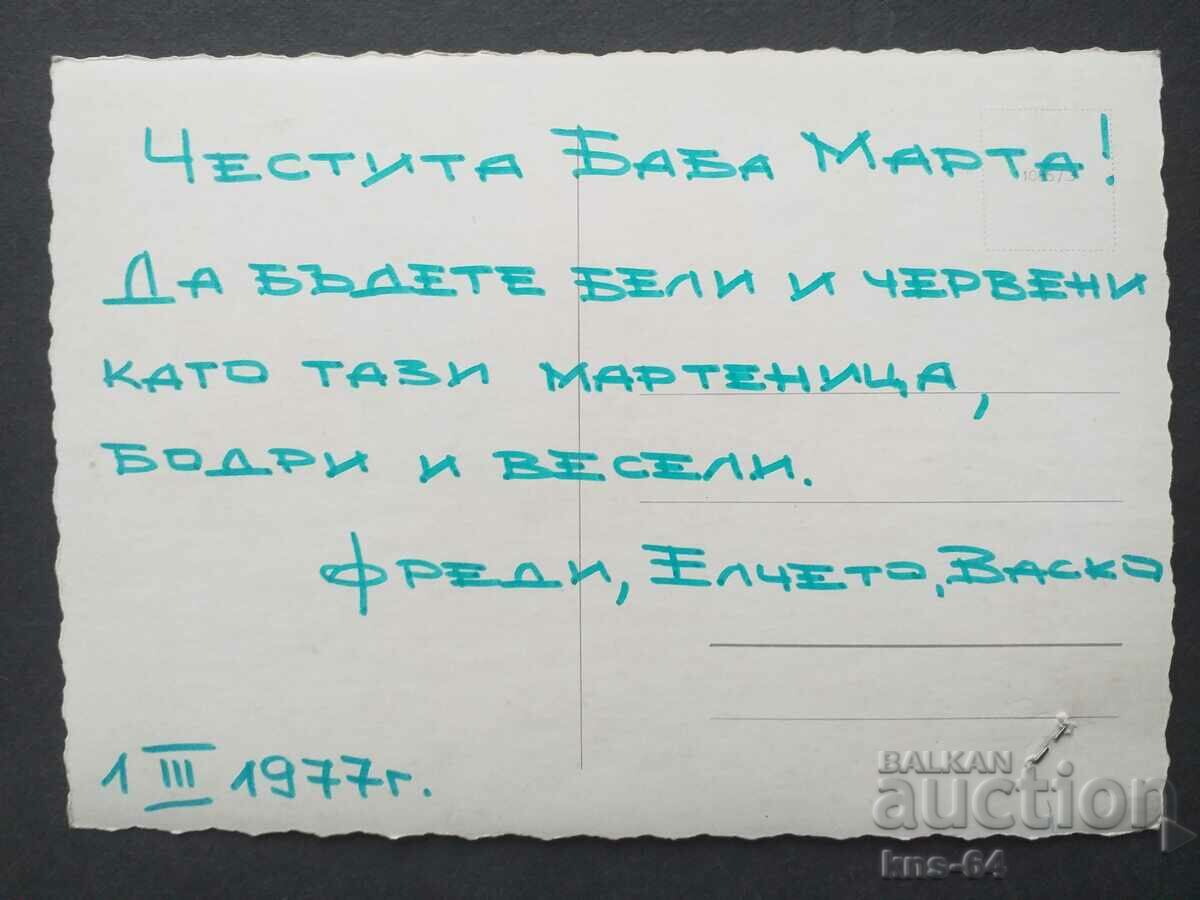 Честита Баба Марта!
Да бъдете бели и червени
като тази мартеница,
бодри и весели.
Фреди, Елчето, Васко
1 III 1977 г.
BALKAN
auction
kns-64